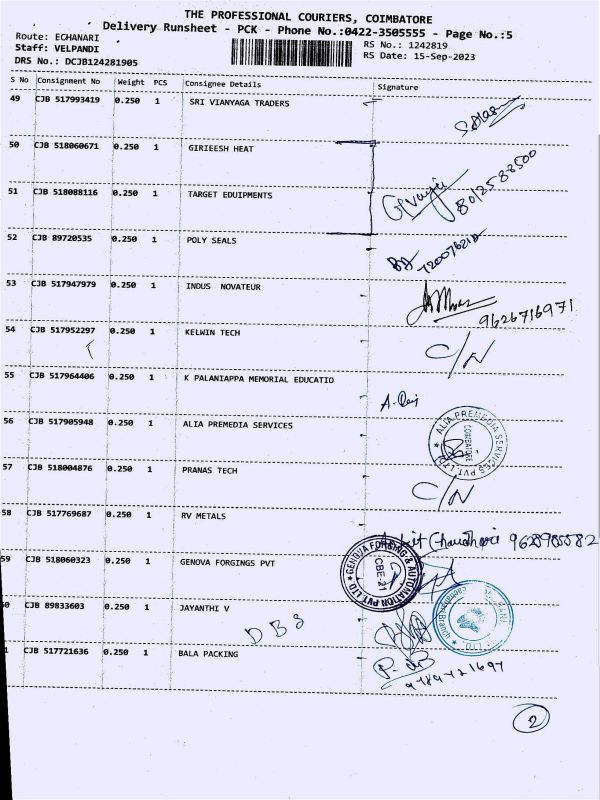 THE PROFESSIONAL COURIERS, COIMBATORE
Delivery Runsheet - PCK - Phone No.:0422-3505555 - Page No.:5
Route: ECHANARI
RS No.: 1242819
Staff: VELPANDI
RS Date: 15-Sep-2023
DRS No.: DCJB124281905
S No Consignment No Weight PCS Consignee Details Signature
49 CJB 517993419 0.250 1 SRI VIANYAGA TRADERS
50 CJB 518060671 0.250 1 GIRIEESH HEAT
51 CJB 518088116 0.250 1 TARGET EDUIPMENTS
8012588500
52 CJB 89720535 0.250 1 POLY SEALS
53 CJB 517947979 0.250 1 INDUS NOVATEUR
9626716971
54 CJB 517952297 0.250 1 KELWIN TECH
C/N
55 CJB 517964406 0.250 1 K PALANIAPPA MEMORIAL EDUCATIO
56 CJB 517905948 0.250 1 ALIA PREMEDIA SERVICES
ALIA PREMEDIA SERVICES PVT. LTD
COIMBATORE
57 CJB 518004876 0.250 1 PRANAS TECH
C/N
58 CJB 517769687 0.250 1 RV METALS
59 CJB 518060323 0.250 1 GENOVA FORGINGS PVT
GENOVA FORGING & AUTOMATION PVT. LTD
CBE-21
CJB 89833603 0.250 1 JAYANTHI V
DBS
CJB 517721636 0.250 1 BALA PACKING
2